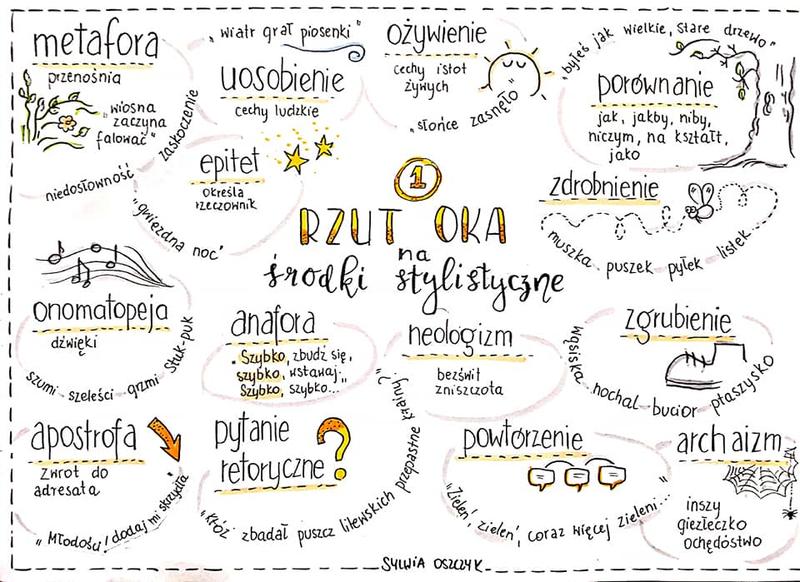 metafora
przenośnia
„wiosna
zaczyna
falować"
niedosłowność
zaskoczenie
„wiatr grał piosenki"
uosobienie
cechy ludzkie
ożywienie
cechy istot
żywych
„słońce zasnęło"
„byłeś jak wielkie, stare drzewo"
porównanie
jak, jakby, niby,
niczym, na kształt,
jako
epitet
określa
rzeczownik
„gwiezdna noc"
1
RZUT OKA
na
środki stylistyczne
zdrobnienie
muszka puszek pyłek listek
onomatopeja
dźwięki
szumi szeleści grzmi stuk-puk
anafora
„Szybko, zbudź się,
szybko, wstawaj.
Szybko, szybko..."
neologizm
bezświt
zniszczota
zgrubienie
wąsiska nochal bucior ptaszysko
apostrofa
zwrot do
adresata
„Młodości! dodaj mi skrzydła"
pytanie
retoryczne
?
„Któż zbadał puszcz litewskich przepastne krainy?"
powtórzenie
„Zieleń, zieleń, coraz więcej zieleni..."
archaizm
inszy
giezłeczko
ochędóstwo
SYLWIA OSZCZYK